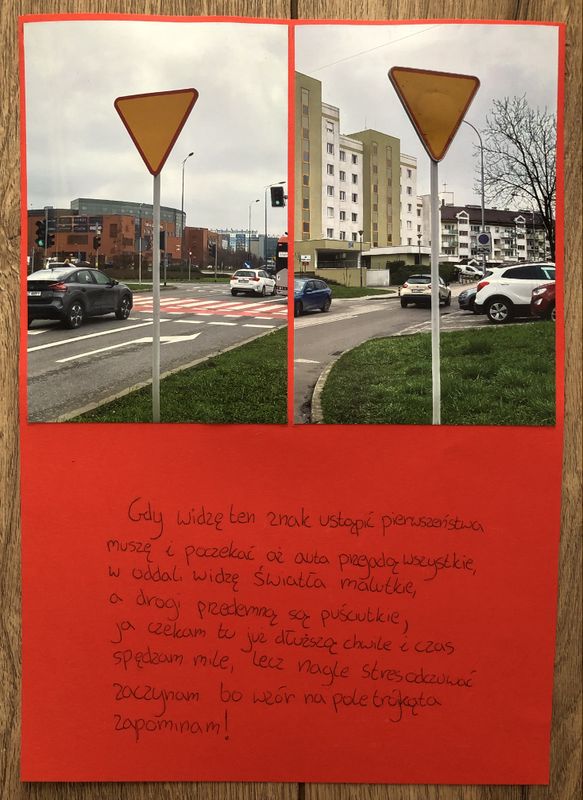 Gdy widzę ten znak ustąpić pierwszeństwa
muszę i poczekać aż auta przejadą wszystkie,
w oddali widzę światła malutkie,
a drogi przedemną są puściutkie,
ja czekam tu już dłuższą chwile i czas
spędzam mile, lecz nagle stres odczuwać
zaczynam bo wzór na pole trójkąta
zapominam!